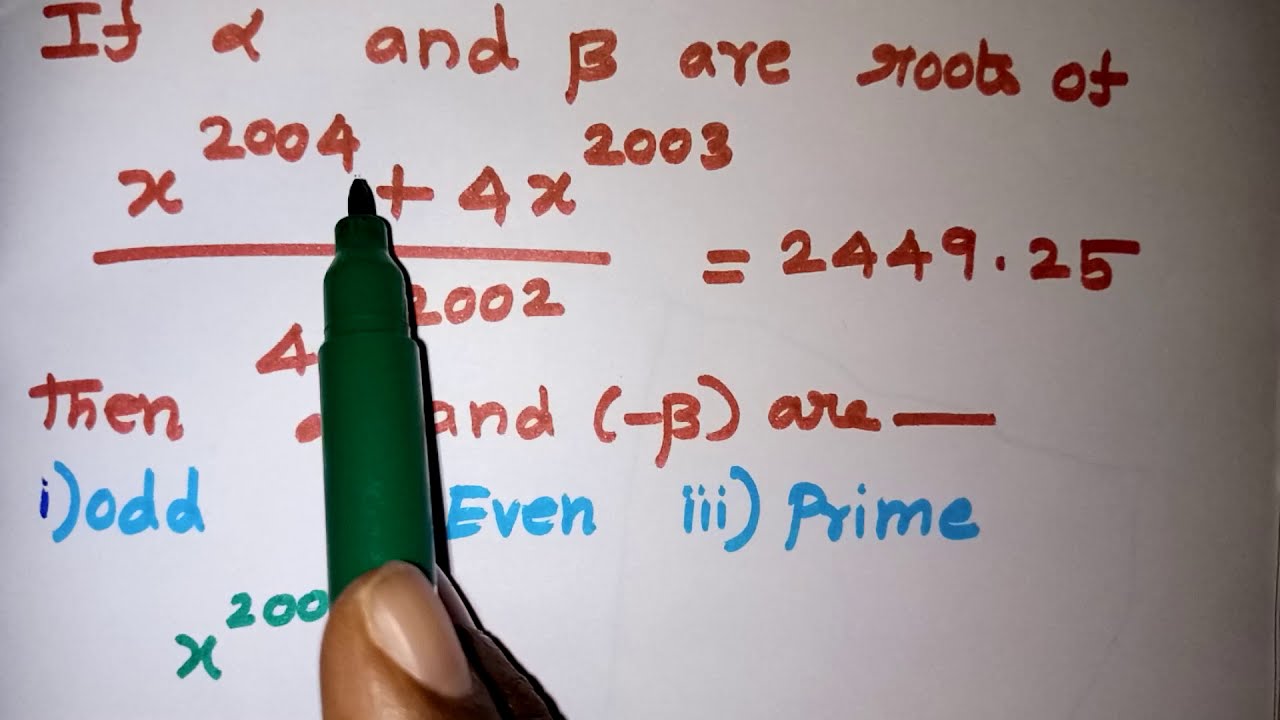 If α and β are roots of
x²⁰⁰⁴ + 4x²⁰⁰³
= 2449.25
4 ²⁰⁰²
Then and (-β) are —
i) odd Even iii) Prime
x²⁰⁰